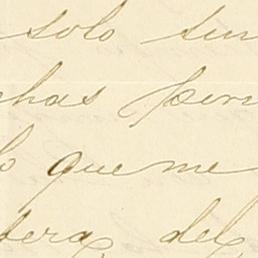 solo sin
chas pen
o que me
sera del